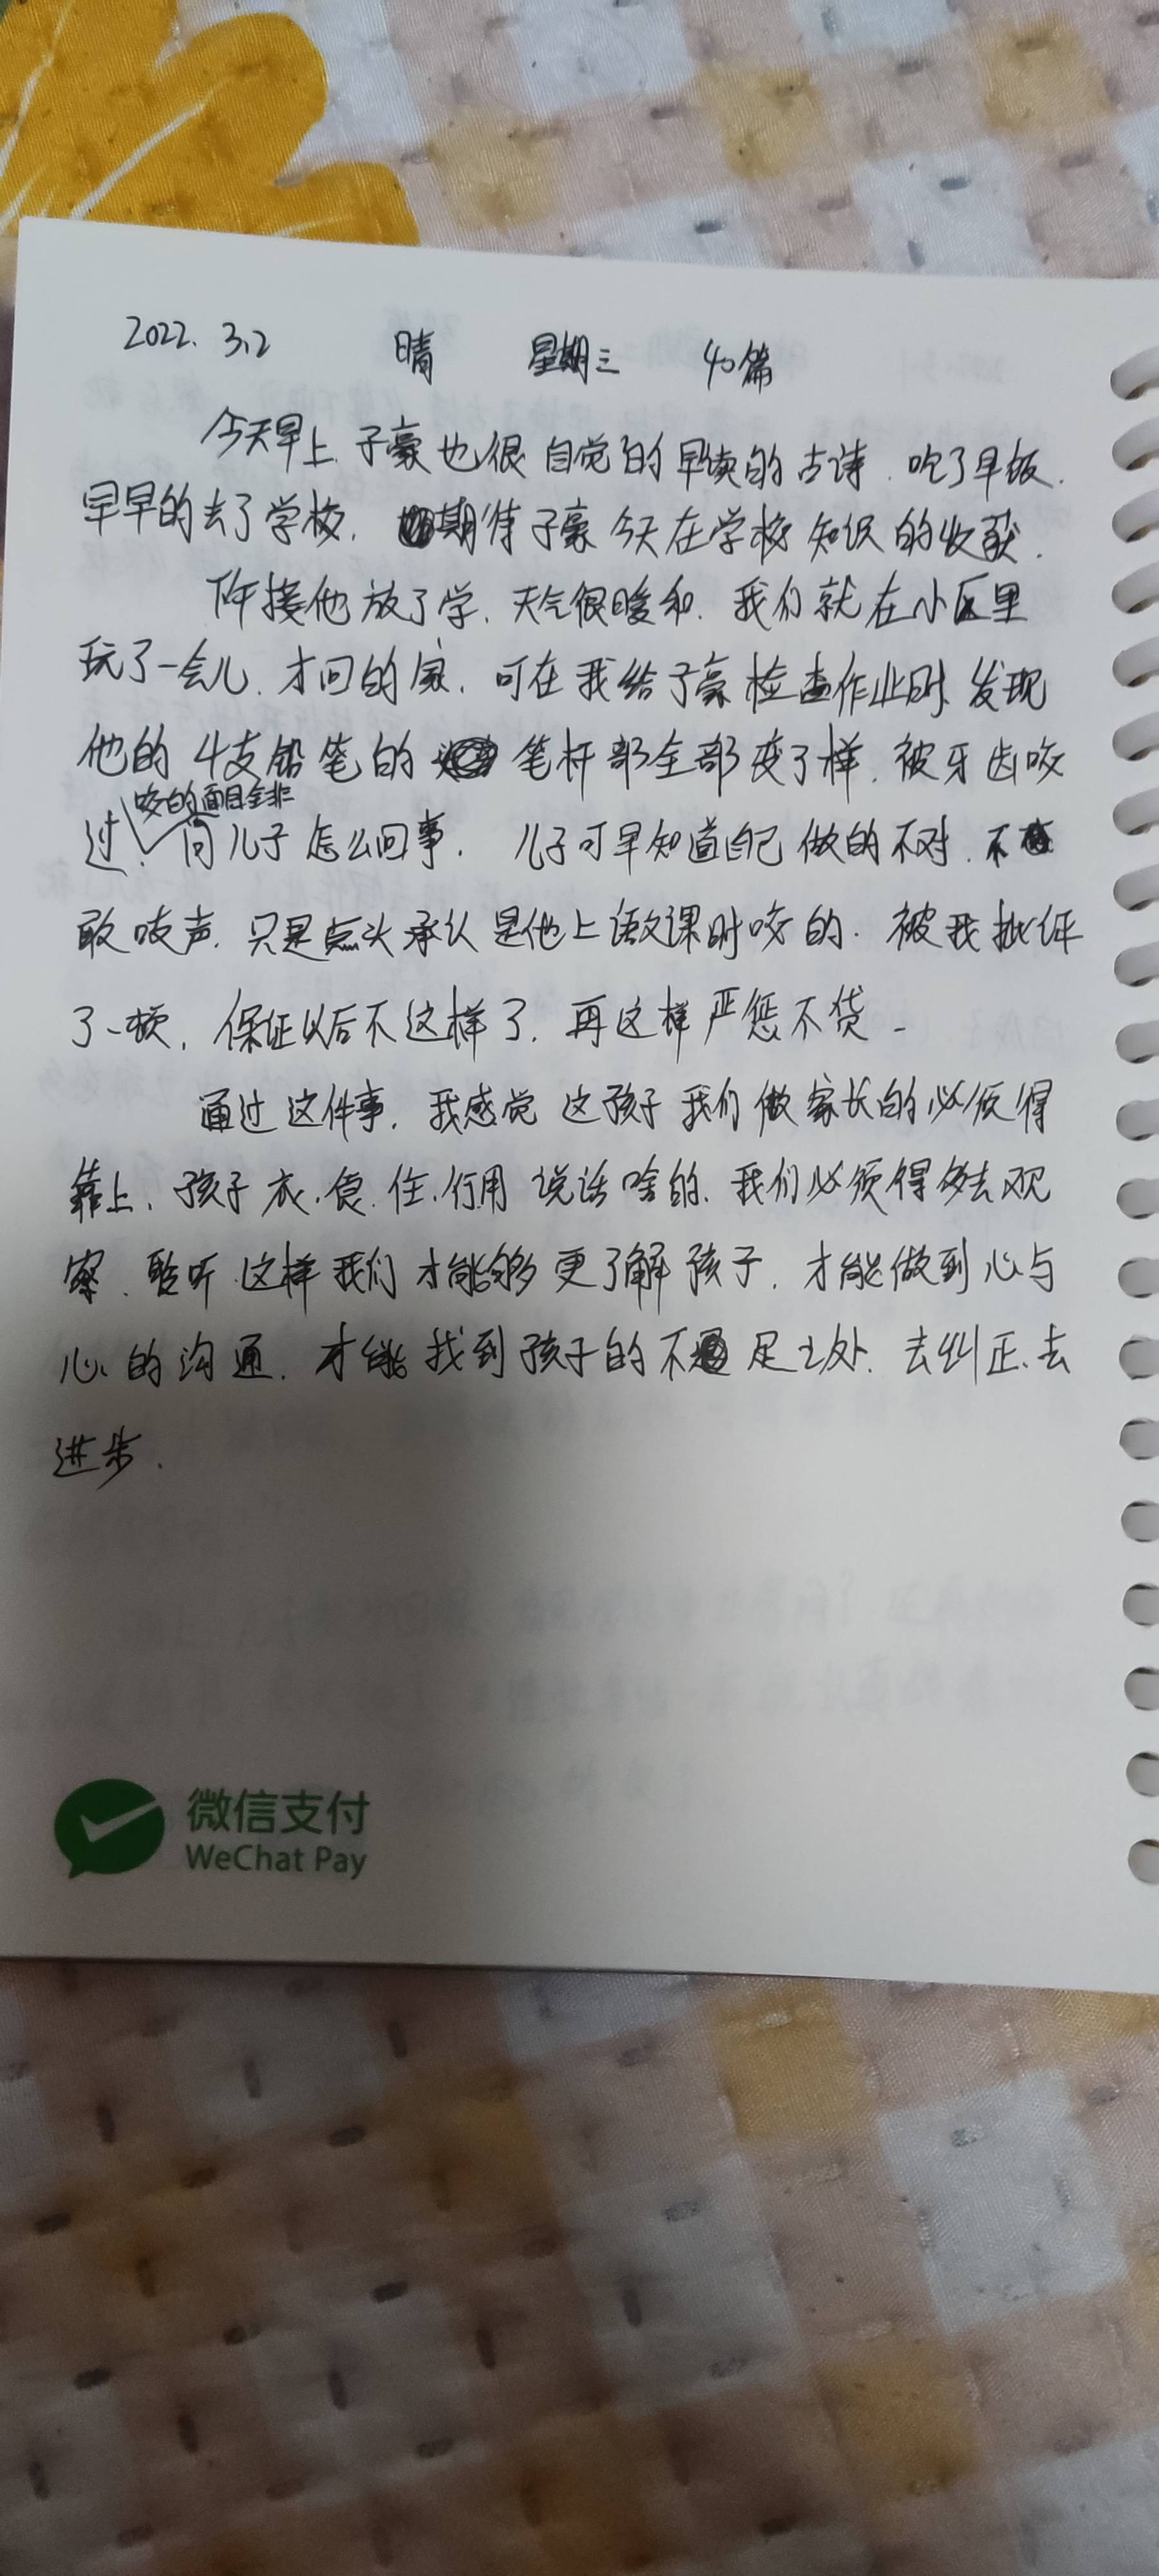 2022. 3.2 晴 星期三 40篇
今天早上.子豪也很自觉的早读的古诗.吃了早饭.
早早的去了学校.期待子豪今天在学校知识的收获.
下午接他放了学.天气很暖和.我们就在小区里
玩了一会儿.才回的家.可在我给子豪检查作业时.发现
他的4支铅笔的笔杆部全部变了样.被牙齿咬
咬的面目全非
过.问儿子怎么回事.儿子可早知道自己做的不对.不
敢吱声.只是点头承认是他上语文课时咬的.被我批评
了一顿.保证以后不这样了.再这样严惩不贷.
通过这件事.我感觉这孩子我们做家长的必须得
靠上.孩子衣.食.住.行.用说话啥的.我们必须得多去观
察.聆听.这样我们才能够更了解孩子.才能做到心与
心的沟通.才能找到孩子的不足之处.去纠正.去
进步.
微信支付
WeChat Pay